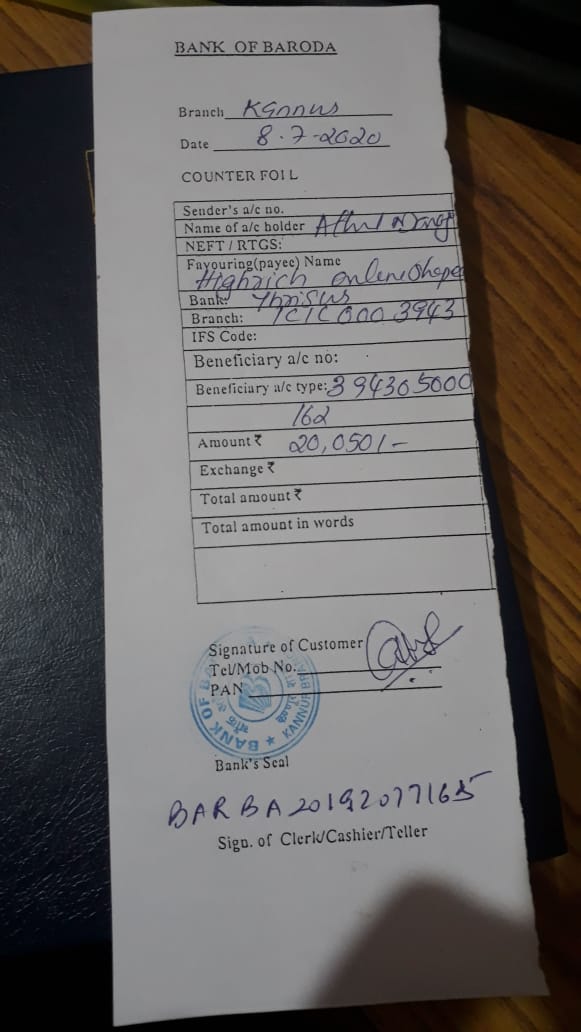 BANK OF BARODA
Branch Kannur
Date 8.7-2020
COUNTER FOIL
Sender's a/c no.
Name of a/c holder Athul
NEFT / RTGS:
Favouring(payee) Name
Highrich online Shope
Bank: Thrisur
Branch: ICIC000 3943
IFS Code:
Beneficiary a/c no:
Beneficiary a/c type: 394305000
162
Amount ₹ 20,050/-
Exchange ₹
Total amount ₹
Total amount in words
Signature of Customer
Tel/Mob No.
PAN
BANK OF BARODA
KANNUR BRANCH
Bank's Seal
Sign. of Clerk/Cashier/Teller